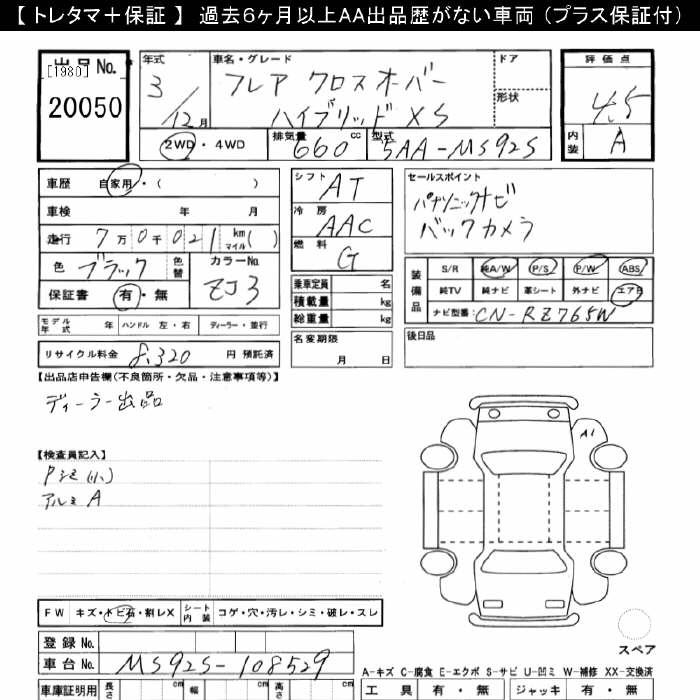 【 トレタマ＋保証 】 過去6ヶ月以上AA出品歴がない車両（プラス保証付）
出品No. [1980] 20050
年式 3/12月
車名・グレード フレア クロスオーバー ハイブリッド XS
ドア
形状
評価点 4.5
内装 A
2WD・4WD
排気量 660cc
型式 5AA-MS92S
車歴 自家用・( )
車検 年 月
走行 7万0千021 km マイル( )
色 ブラック 色替
カラーNo. ZJ3
保証書 有・無
シフト AT
冷房 AAC
燃料 G
乗車定員 名
積載量 kg
総重量 kg
名変期限 月 日
セールスポイント
パナソニックナビ
バックカメラ
装備品 S/R 純A/W P/S P/W ABS
純TV 純ナビ 革シート 外ナビ エアB
ナビ型番: CN-RZ765W
後日品
モデル年式 年 ハンドル 左・右 ディーラー・並行
リサイクル料金 8,320 円 預託済
【出品店申告欄(不良箇所・欠品・注意事項等)】
ディーラー出品
【検査員記入】
Pシミ(小)
アルミA
A1
FW キズ・トビ石・割レX シート内装 コゲ・穴・汚レ・シミ・破レ・スレ
スペア
登録No.
車台No. MS92S-108529
A-キズ C-腐食 E-エクボ S-サビ U-凹ミ W-補修 XX-交換済
車庫証明用 長さ cm 幅 cm 高さ cm
工具 有・無 ジャッキ 有・無